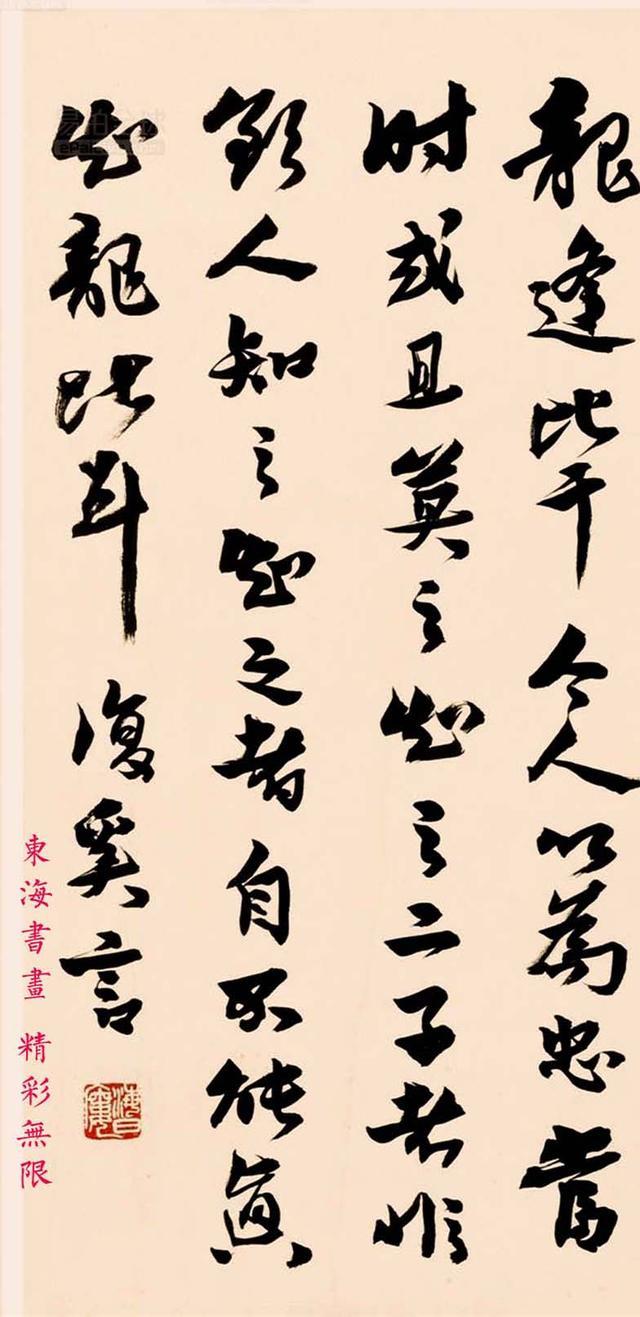 龍逢比干今人以為忠當
時或且莫之之二子者惟
人知之之者自不能真
龍比耳復奚言
東海書畫 精彩無限